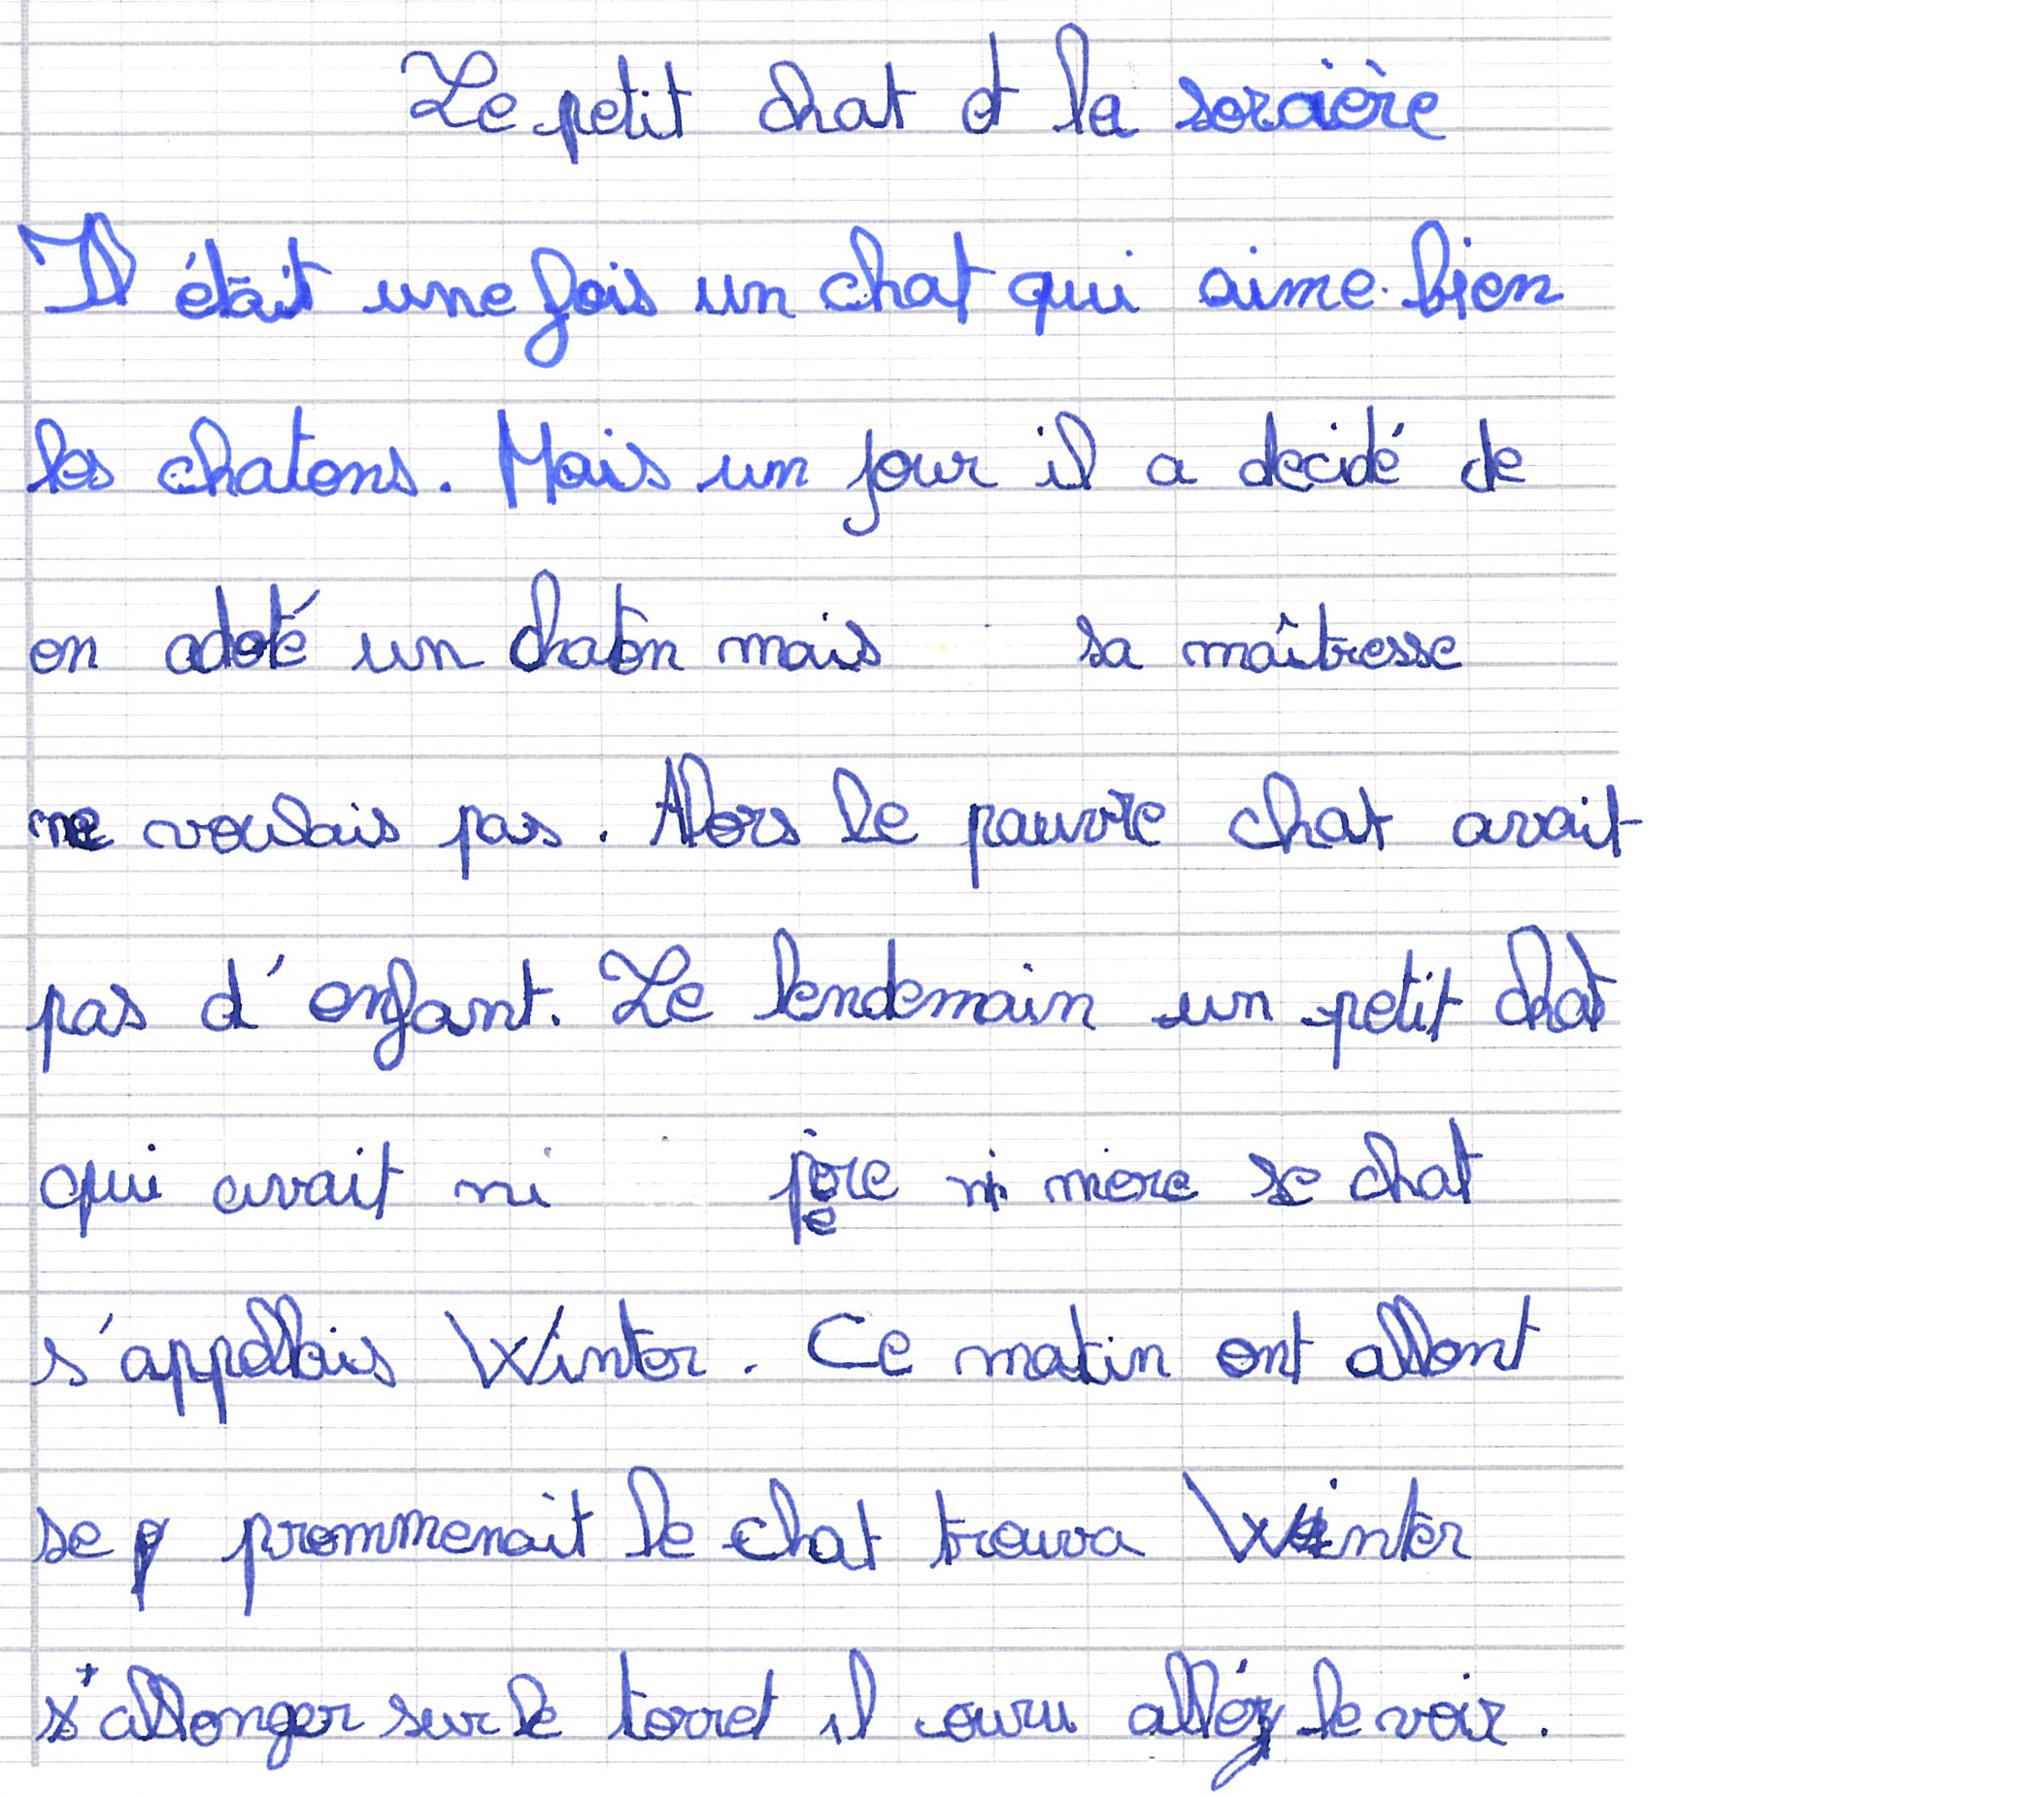 Le petit chat et la sorcière
Il était une fois un chat qui aime bien
les chatons. Mais un jour il a decidé de
en adoté un chaton mais sa maîtresse
ne voulais pas. Alors le pauvre chat avait
pas d'enfant. Le lendemain un petit chat
qui avait ni père ni mère se chat
s'appellais Winter. Ce matin ont allont
se prommenait le chat trouva Winter
s'allonger sur le torret il couru alléz le voir.